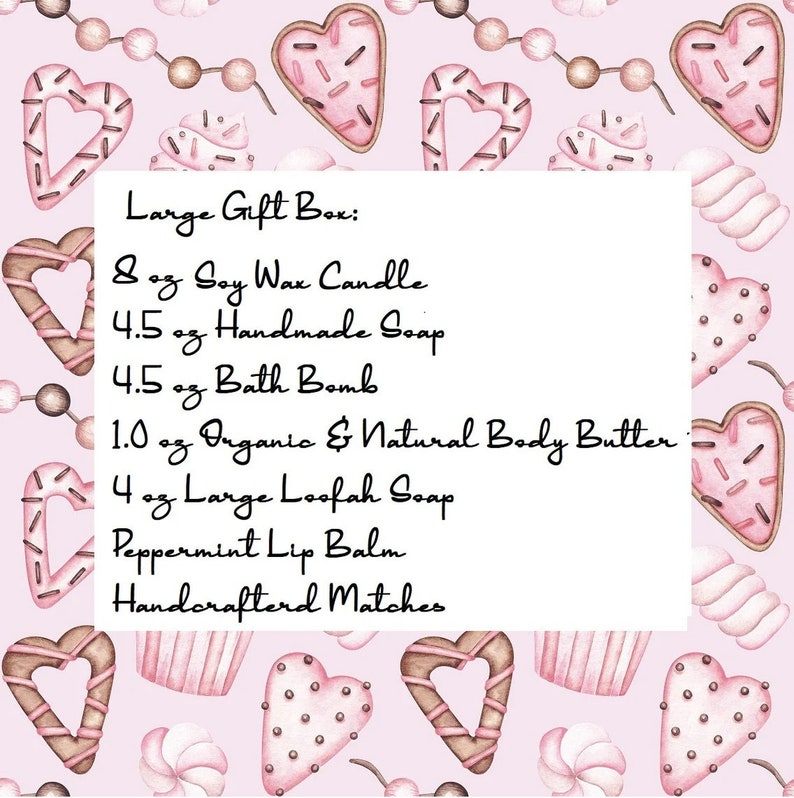 Large Gift Box:
8 oz Soy Wax Candle
4.5 oz Handmade Soap
4.5 oz Bath Bomb
1.0 oz Organic & Natural Body Butter
4 oz Large Loofah Soap
Peppermint Lip Balm
Handcrafterd Matches